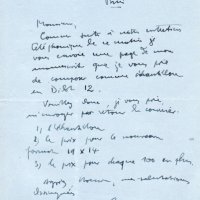 Paris
Monsieur,
Comme suite à notre entretien
téléphonique de ce matin je
vous envoie une page de mon
manuscrit que je vous prie
de composer comme échantillon
en Didot 12
Veuillez donc, je vous prie,
m'envoyer par retour le courrier.
1) l'échantillon
2) le prix pour le nouveau
format 19 x 14
3) le prix pour chaque 100 en plus.
Agréez Monsieur, mes salutations
distinguées